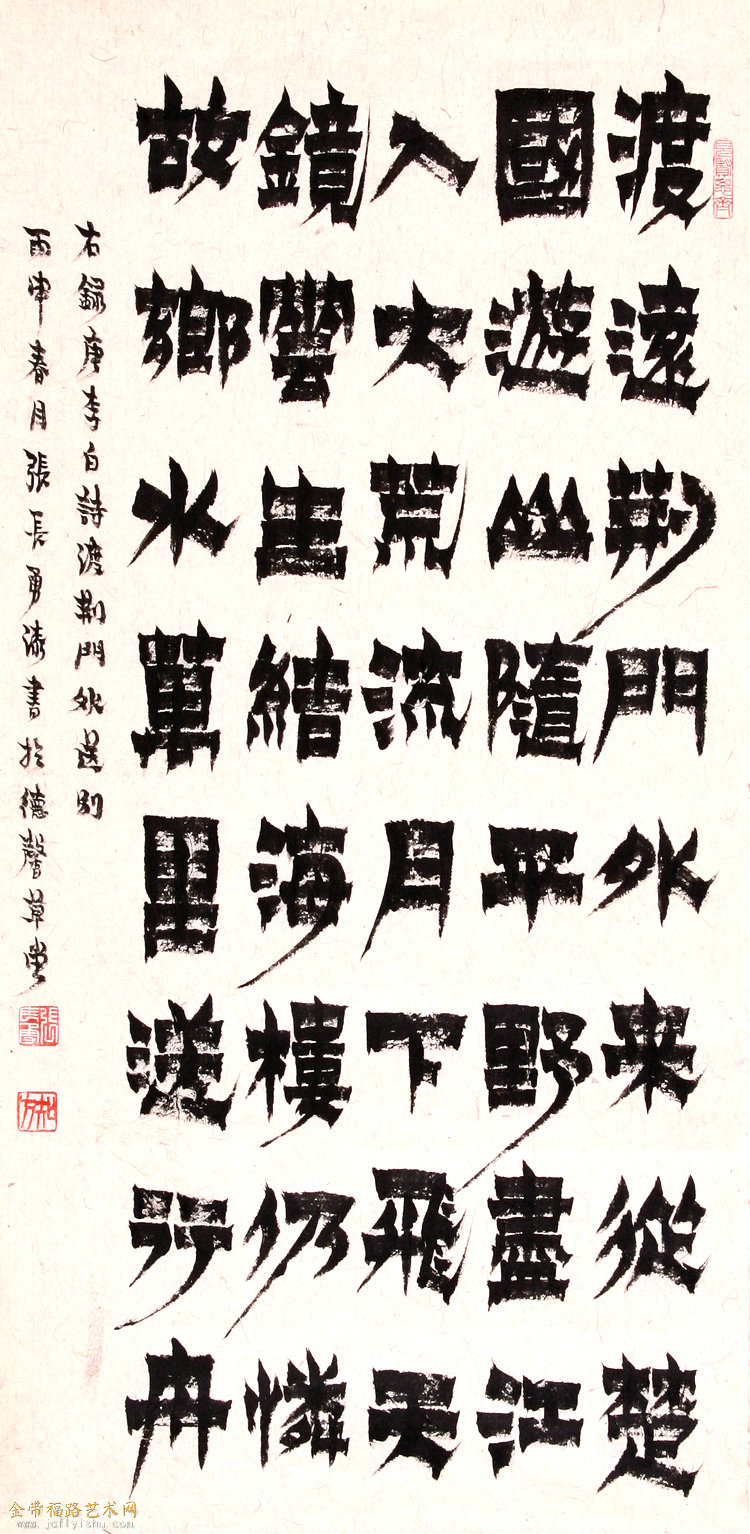 渡遠荆門外来從楚
國遊山隨平野盡江
入大荒流月下飛天
鏡雲生結海樓仍憐
故鄉水萬里送行舟
右録唐李白詩渡荆門外送別
丙申春月張長勇漆書於德馨草堂
金带福路艺术网
www.jdflyishu.com